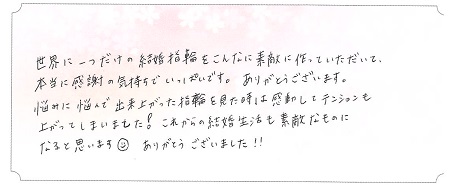 世界に一つだけの結婚指輪をこんなに素敵に作っていただいて、
本当に感謝の気持ちでいっぱいです。ありがとうございます。
悩みに悩んで出来上がった指輪を見た時は感動してテンションも
上がってしまいました! これからの結婚生活も素敵なものに
なると思います☺ ありがとうございました!!